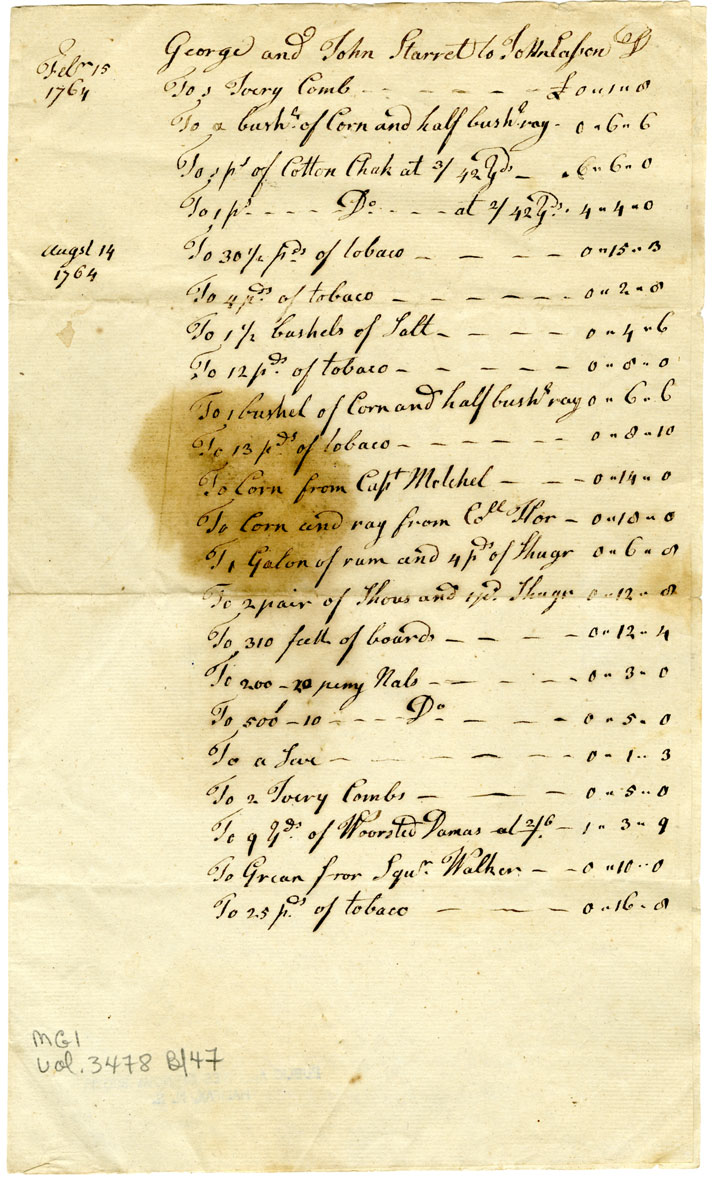 Febr 15
1764
George and John Starret to John Casson Dr
To 1 Ivery Comb - - - - - - £ 0 " 1 " 8
To a bushl of Corn and half bushl ray - 0 " 6 " 6
To 1 ps of Cotton Chak at 3/ 42 Yds - 6 " 6 " 0
To 1 ps - - - - Do - - - - at 2/ 42 Yds. 4 " 4 " 0
Augst 14
1764
To 30 1/2 pds of tobaco - - - - 0 " 15 " 3
To 4 pds of tobaco - - - - - - 0 " 2 " 8
To 1 1/2 bushels of Salt - - - - 0 " 4 " 6
To 12 pds. of tobaco - - - - - 0 " 8 " 0
To 1 bushel of Corn and half bushl ray 0 " 6 " 6
To 13 pds of tobaco - - - - - 0 " 8 " 10
To Corn from Capt Mitchel - - - 0 " 14 " 0
To Corn and ray from Coll Hor - 0 " 18 " 0
To 1 Galon of rum and 4 pds of Shugr 0 " 6 " 8
To 2 pair of Shous and 1 pd. Shugr 0 " 12 " 8
To 310 feett of boards - - - - 0 " 12 " 4
To 200 - 20 peny Nals - - - - 0 " 3 " 0
To 500 - 10 - - - - Do - - - - 0 " 5 " 0
To a Sive - - - - - - 0 " 1 " 3
To 2 Ivery Combs - - - - 0 " 5 " 0
To 9 Yds. of Woorsted Damas at 2/6 - 1 " 3 " 9
To Grean fror Squr. Walker - - 0 " 10 " 0
To 25 pds of tobaco - - - - 0 " 16 " 8
MG1
Vol. 3478 B/47